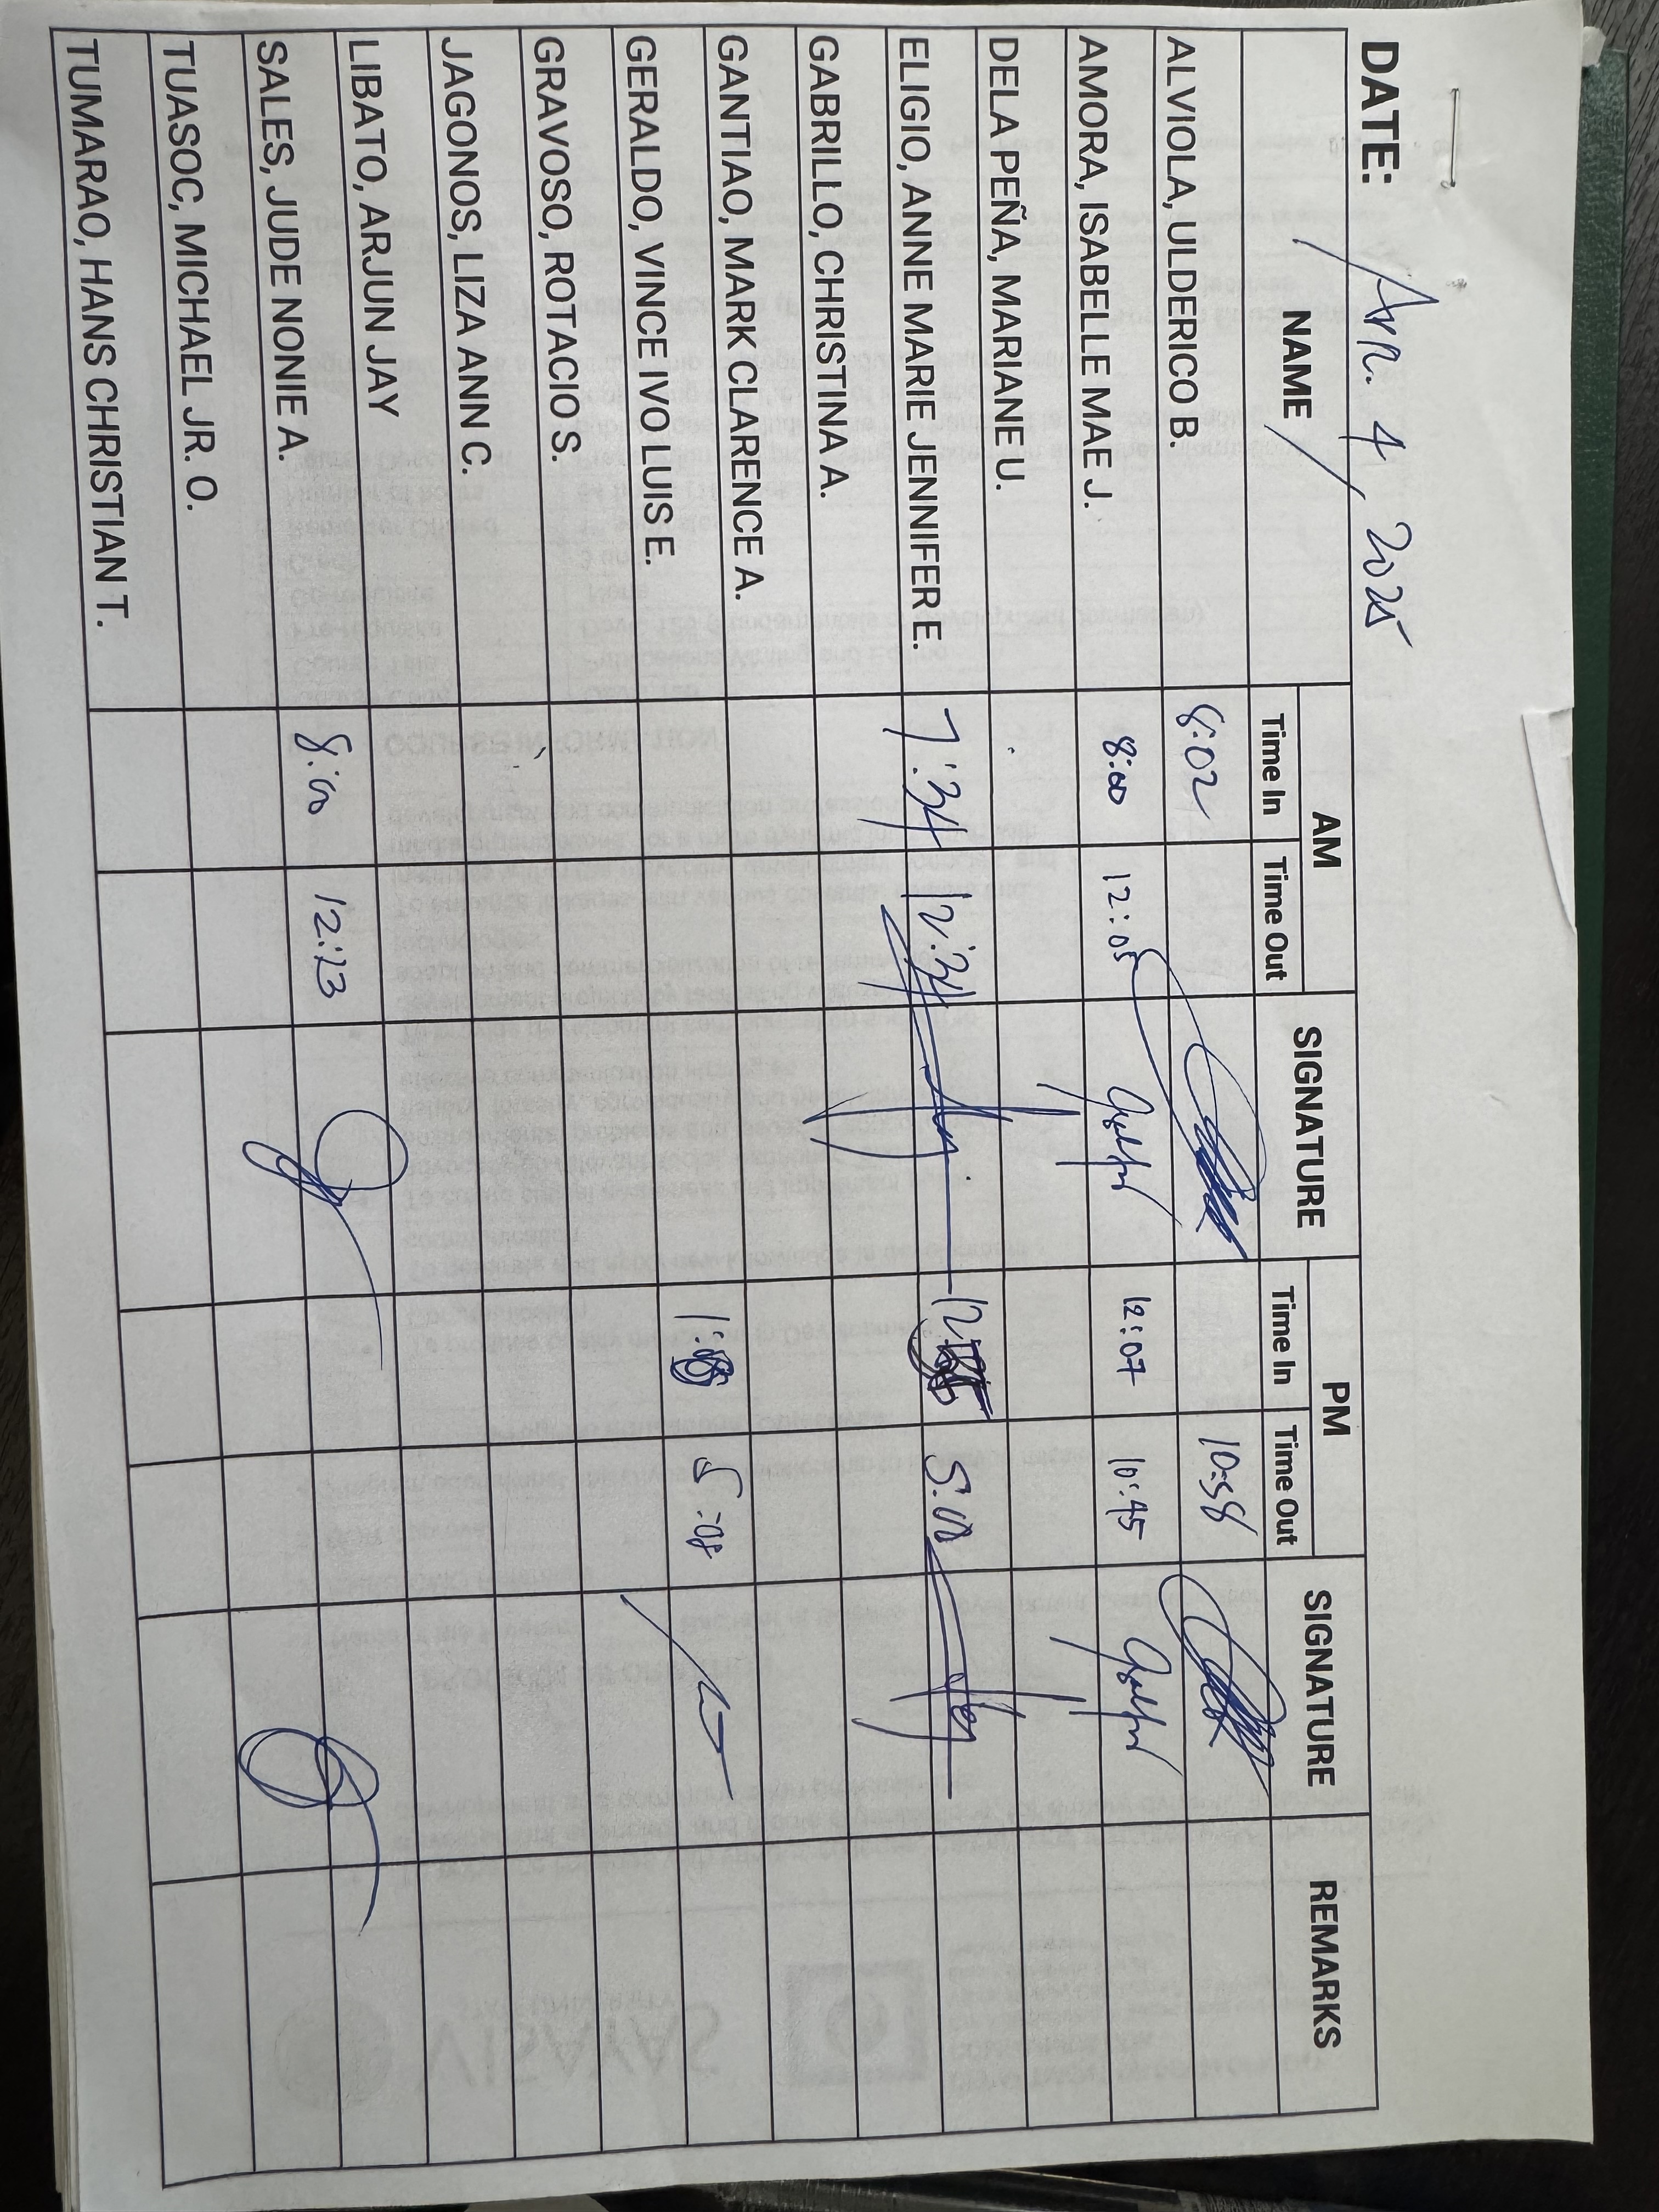 DATE: Apr. 4, 2025
NAME AM SIGNATURE PM SIGNATURE REMARKS
Time In Time Out Time In Time Out
ALVIOLA, ULDERICO B. 8:02 10:58
AMORA, ISABELLE MAE J. 8:00 12:05 12:07 10:45
DELA PEÑA, MARIANE U.
ELIGIO, ANNE MARIE JENNIFER E. 7:34 12:34 5:00
GABRILLO, CHRISTINA A.
GANTIAO, MARK CLARENCE A.
GERALDO, VINCE IVO LUIS E. 5:08
GRAVOSO, ROTACIO S.
JAGONOS, LIZA ANN C.
LIBATO, ARJUN JAY
SALES, JUDE NONIE A. 8:00 12:23
TUASOC, MICHAEL JR. O.
TUMARAO, HANS CHRISTIAN T.